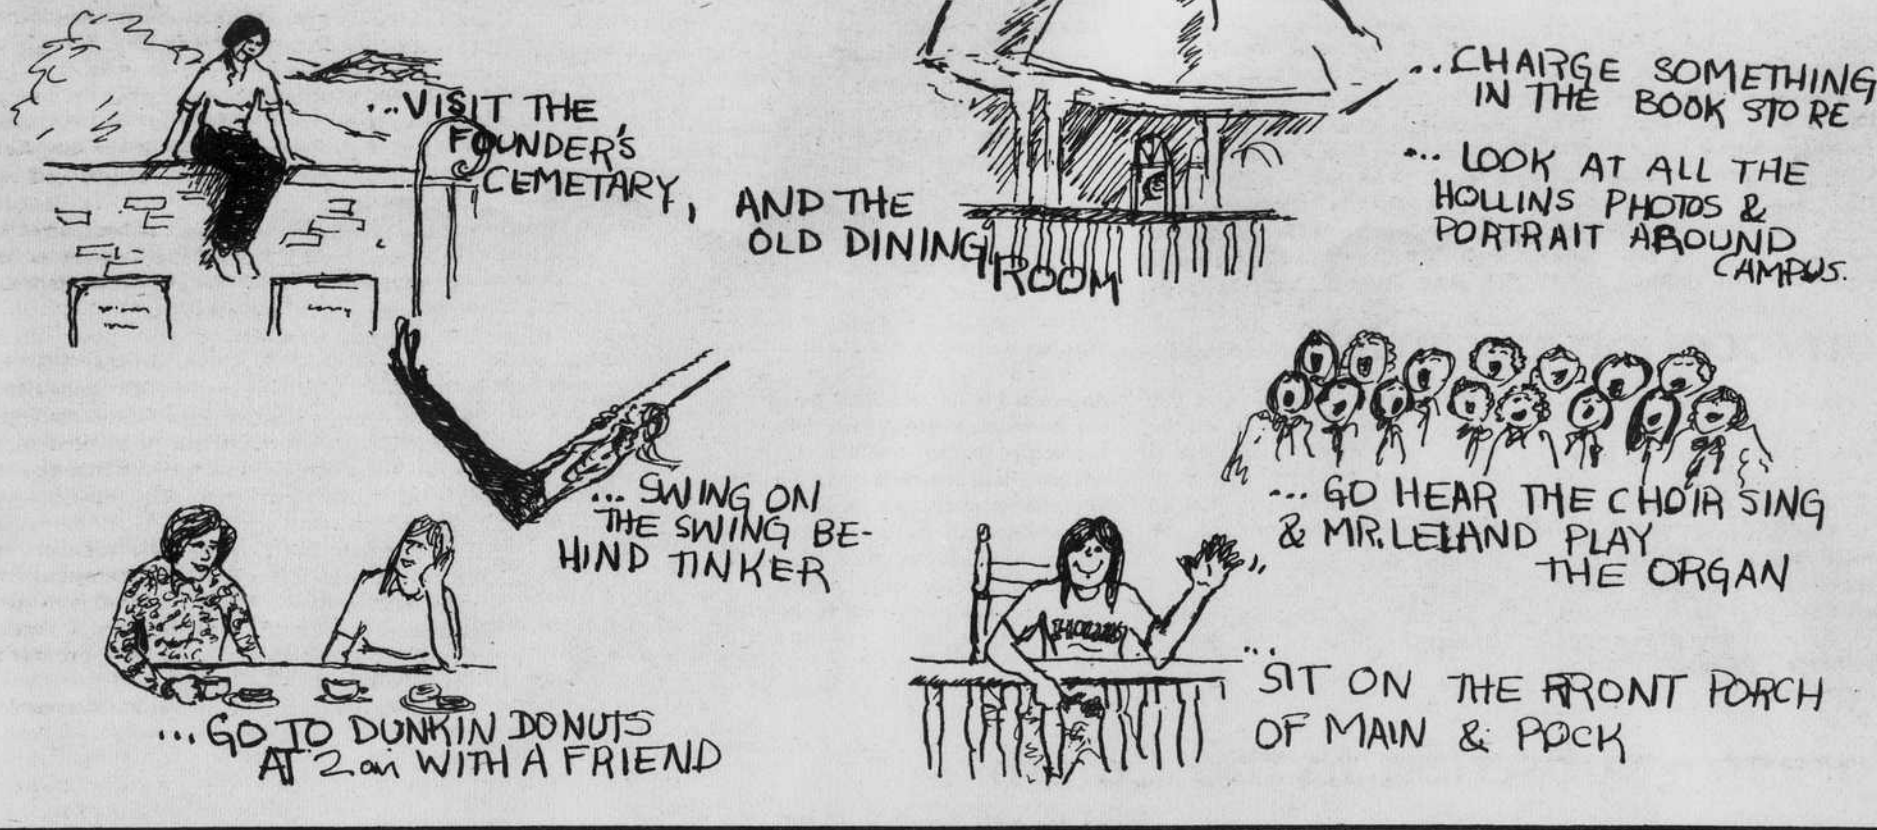 ...VISIT THE
FOUNDER'S
CEMETARY,
AND THE
OLD DINING
ROOM
...CHARGE SOMETHING
IN THE BOOK STORE
... LOOK AT ALL THE
HOLLINS PHOTOS &
PORTRAIT AROUND
CAMPUS.
... SWING ON
THE SWING BE-
HIND TINKER
... GO HEAR THE CHOIR SING
& MR. LELAND PLAY
THE ORGAN
...GO TO DUNKIN DONUTS
AT 2am WITH A FRIEND
HOLLINS
...
SIT ON THE FRONT PORCH
OF MAIN & ROCK